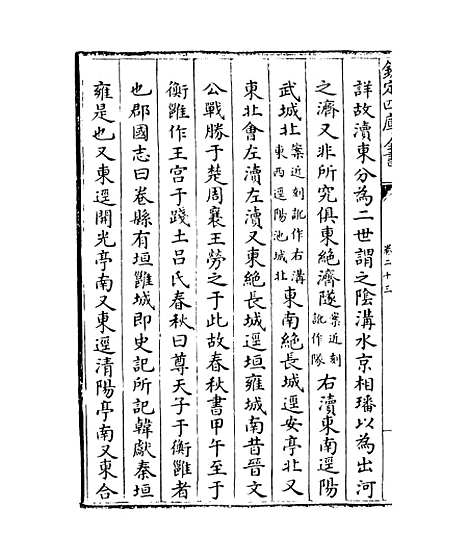 欽定四庫全書
卷二十三
詳故瀆東分為二世謂之陰溝水京相璠以為出河
之濟又非所究俱東絕濟隧案近刻訛作隊右瀆東南逕陽
武城北案近刻訛作右溝東西逕陽池城北東南絕長城逕安亭北又
東北會左瀆左瀆又東絕長城逕垣雍城南昔晉文
公戰勝于楚周襄王勞之于此故春秋書甲午至于
衡雝作王宫于踐土吕氏春秋曰尊天子于衡雝者
也郡國志曰卷縣有垣雝城即史記所記韓獻秦垣
雍是也又東逕開光亭南又東逕清陽亭南又東合